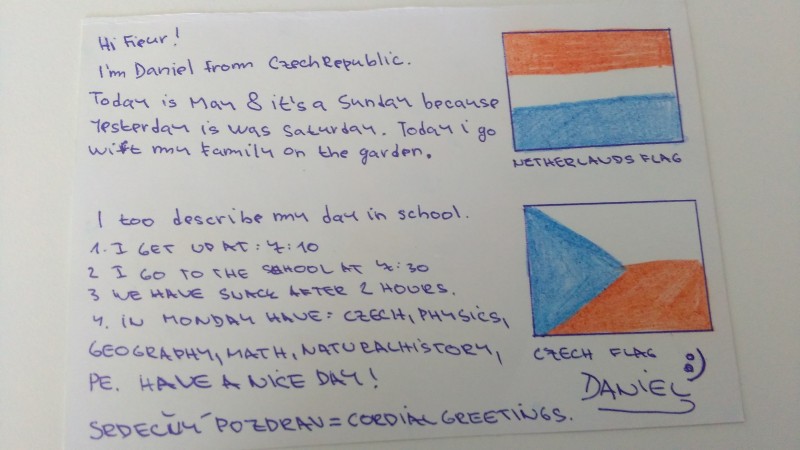 Hi Fleur!
I'm Daniel from Czech Republic.
Today is May 8 it's a Sunday because
Yesterday is was Saturday. Today i go
with my family on the garden.
NETHERLANDS FLAG
I too describe my day in school.
1. I GET UP AT: 7:10
2 I GO TO THE SCHOOL AT 7:30
3 WE HAVE SNACK AFTER 2 HOURS.
4. IN MONDAY HAVE: CZECH, PHYSICS,
GEOGRAPHY, MATH, NATURALHISTORY,
PE. HAVE A NICE DAY!
CZECH FLAG :)
DANIEL
SRDEČNÝ POZDRAV = CORDIAL GREETINGS.